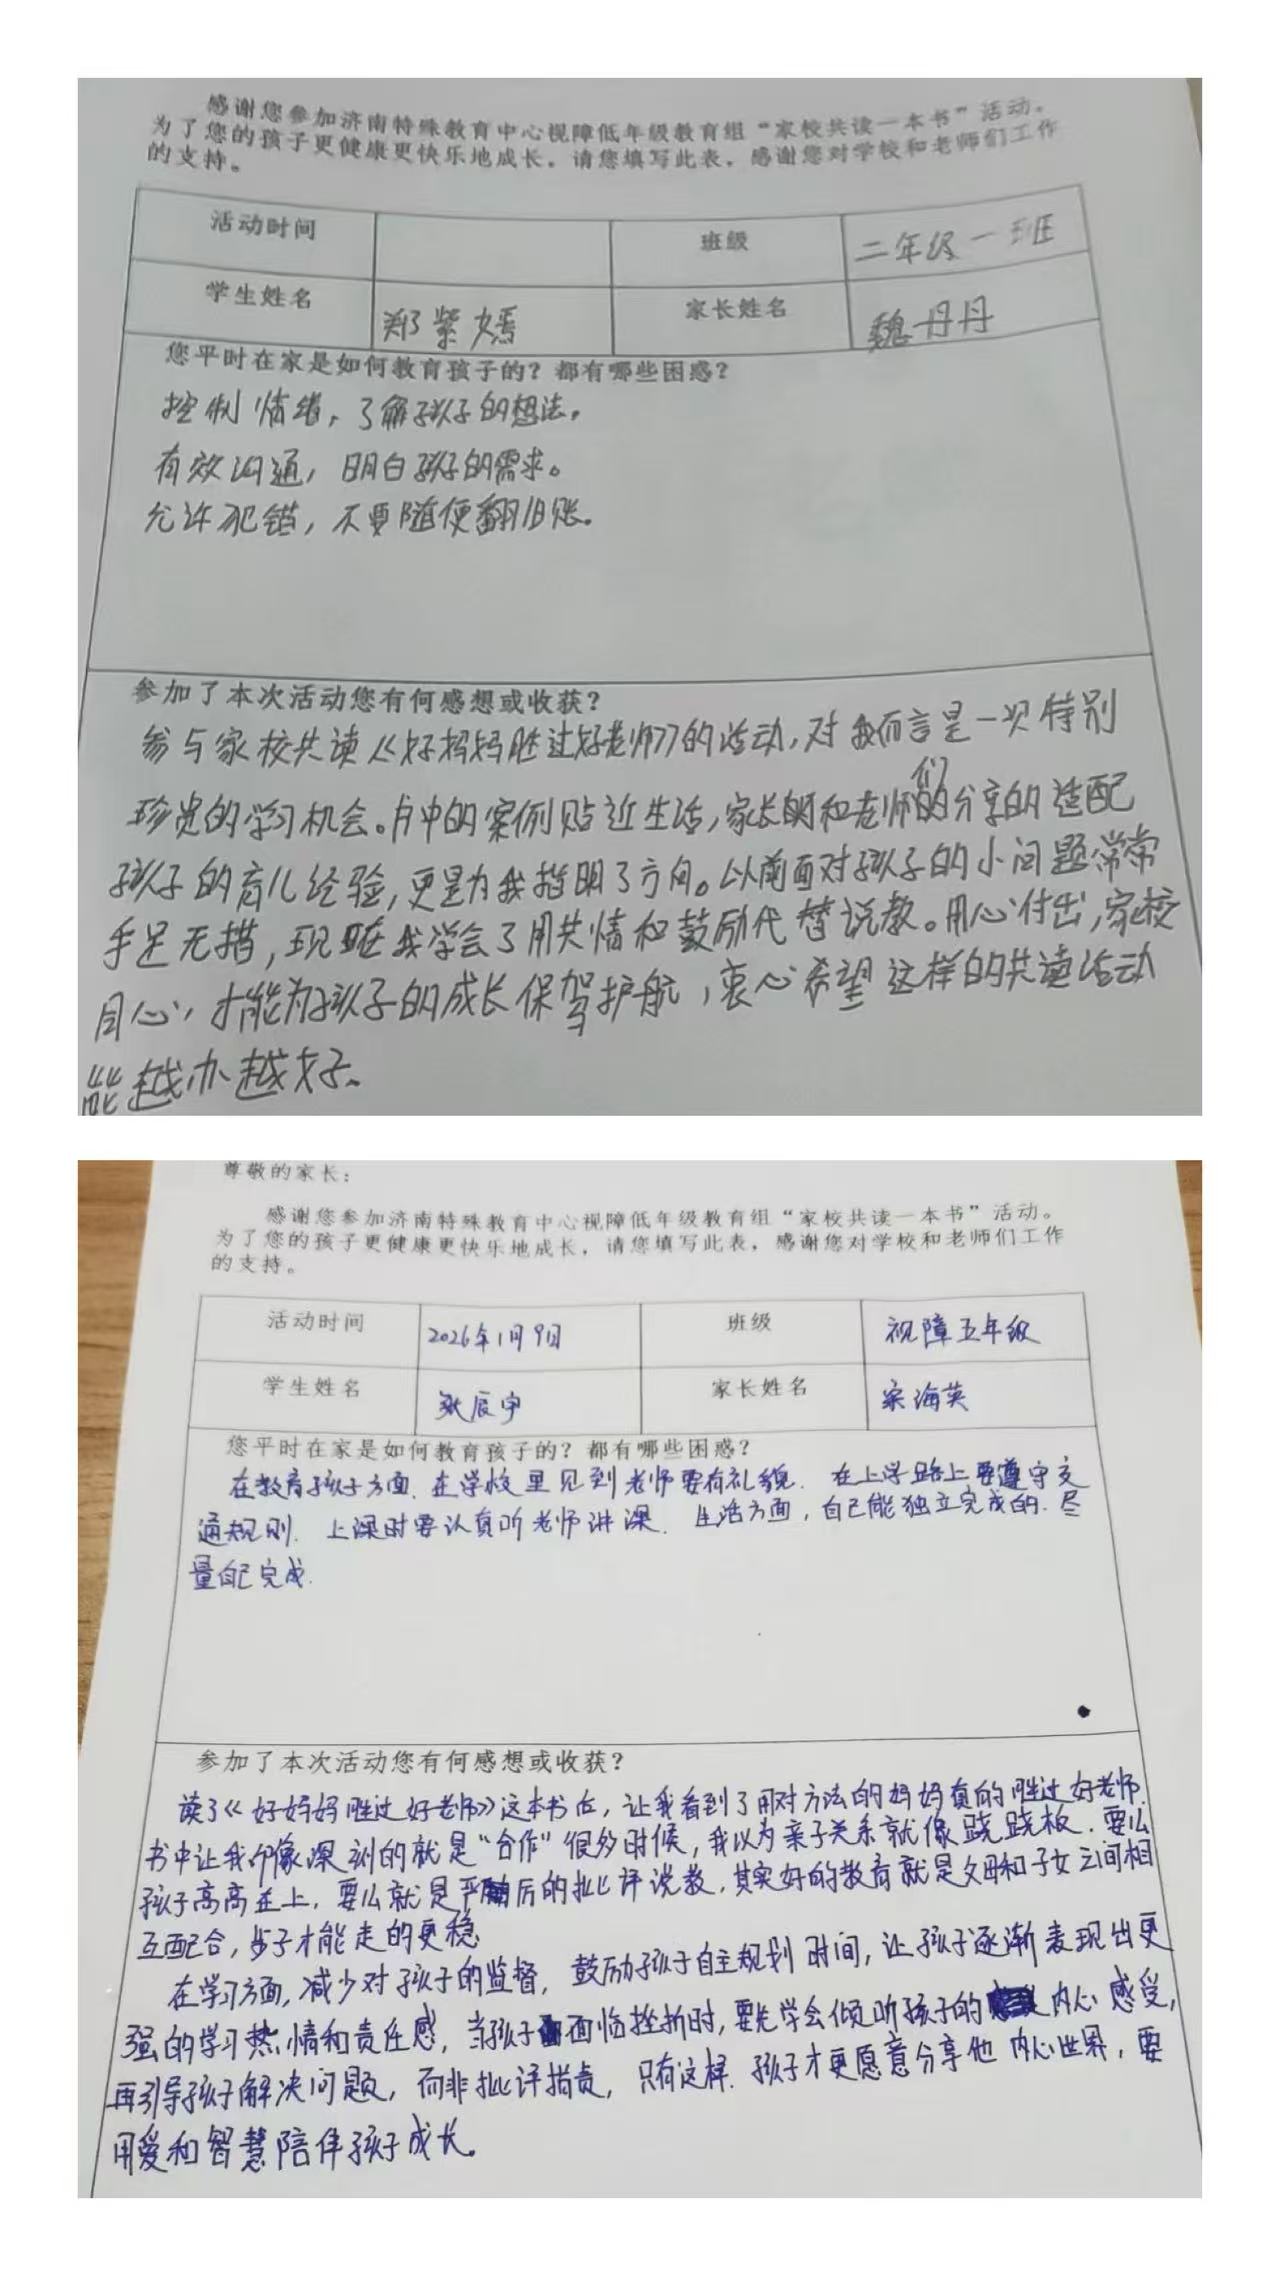 感谢您参加济南特殊教育中心视障低年级教育组“家校共读一本书”活动。
为了您的孩子更健康更快乐地成长，请您填写此表，感谢您对学校和老师们工作
的支持。
活动时间 班级 二年级一班
学生姓名 郑紫嫣 家长姓名 魏丹丹
您平时在家是如何教育孩子的？都有哪些困惑？
控制情绪，了解孩子的想法。
有效沟通，明白孩子的需求。
允许犯错，不要随便翻旧账。
参加了本次活动您有何感想或收获？
参与家校共读《好妈妈胜过好老师》的活动，对我而言是一次特别
珍贵的学习机会。书中的案例贴近生活，家长们和老师们的分享的适配
孩子的育儿经验，更是为我指明了方向。以前面对孩子的小问题常常
手足无措，现在我学会了用共情和鼓励代替说教。用心付出，家校
同心，才能为孩子的成长保驾护航，衷心希望这样的共读活动
能越办越好。
尊敬的家长：
感谢您参加济南特殊教育中心视障低年级教育组“家校共读一本书”活动。
为了您的孩子更健康更快乐地成长，请您填写此表，感谢您对学校和老师们工作
的支持。
活动时间 2026年1月9日 班级 视障五年级
学生姓名 辰宇 家长姓名 宋海英
您平时在家是如何教育孩子的？都有哪些困惑？
在教育孩子方面，在学校里见到老师要有礼貌．在上学路上要遵守交
通规则．上课时要认真听老师讲课．生活方面，自己能独立完成的．尽
量自己完成．
参加了本次活动您有何感想或收获？
读了《好妈妈胜过好老师》这本书后，让我看到了用对方法的妈妈真的胜过好老师．
书中让我印像深刻的就是“合作”很多时候，我以为亲子关系就像跷跷板．要么
孩子高高在上，要么就是严厉的批评说教，其实好的教育就是父母和子女之间相
互配合，步子才能走的更稳
在学习方面，减少对孩子的监督，鼓励孩子自主规划时间，让孩子逐渐表现出更
强的学习热情和责任感，当孩子面临挫折时，要先学会倾听孩子的内心感受，
再引导孩子解决问题，而非批评指责，只有这样．孩子才更愿意分享他内心世界，要
用爱和智慧陪伴孩子成长。